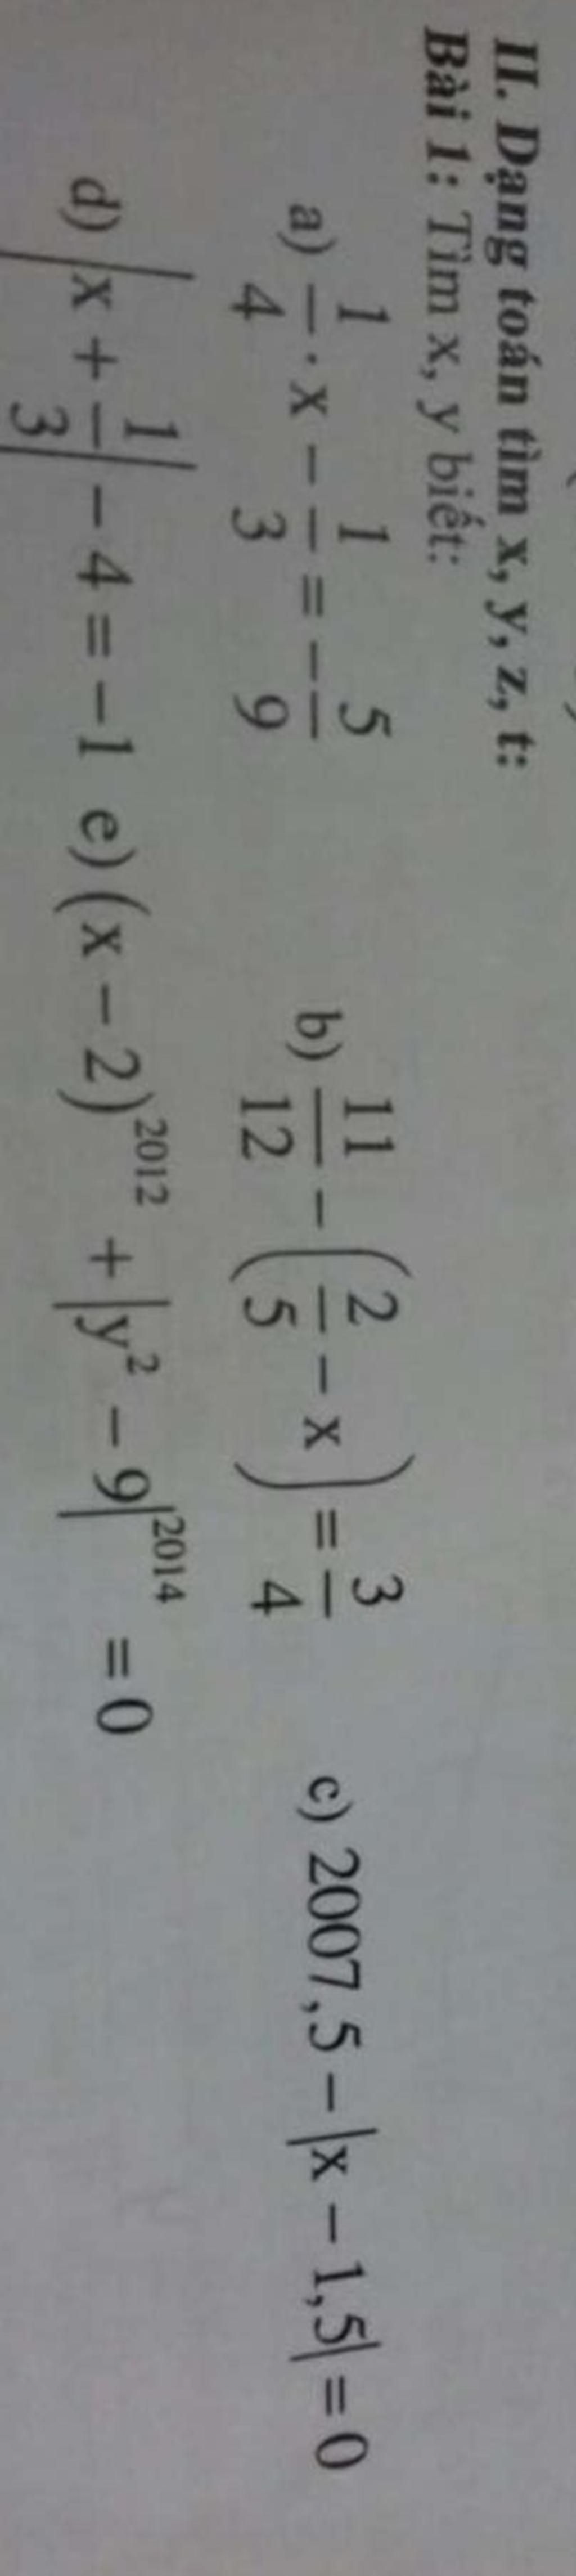 II. Dạng toán tìm x, y, z, t:
Bài 1: Tìm x, y biết:
a) 1/4 · x − 1/3 = −5/9 b) 11/12 − (2/5 − x) = 3/4 c) 2007,5 − |x − 1,5| = 0
d) |x + 1/3| − 4 = −1 e) (x − 2)^2012 + |y² − 9|^2014 = 0